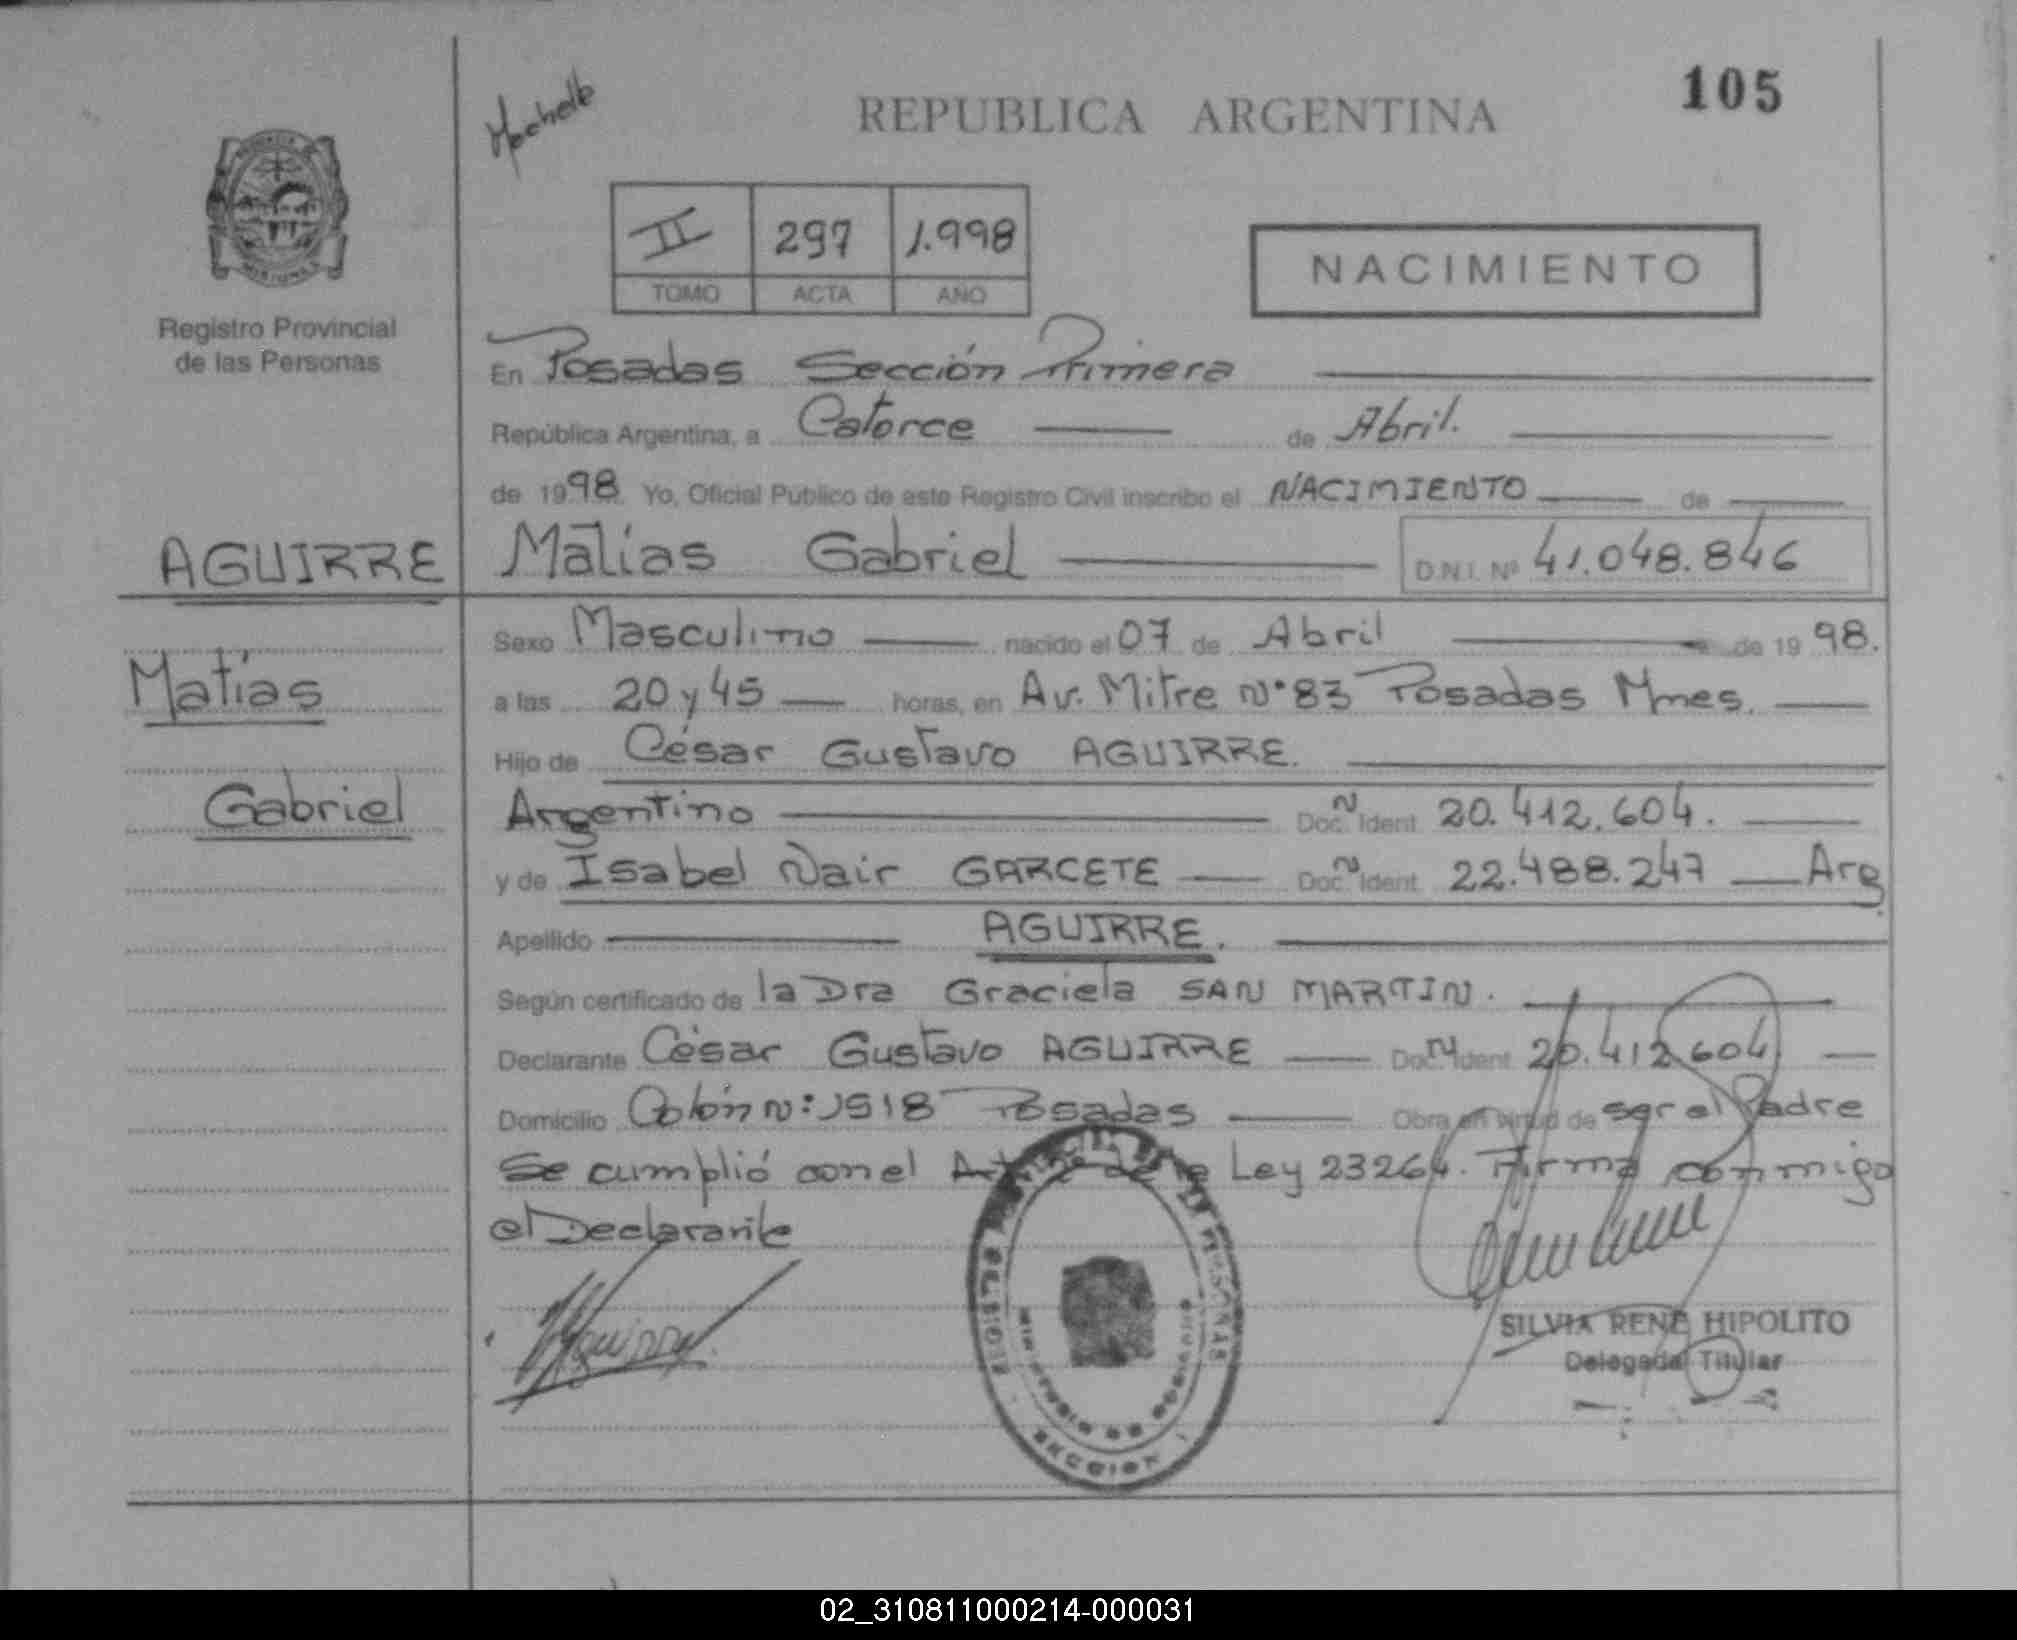 105
REPUBLICA ARGENTINA
II 297 1.998
TOMO ACTA AÑO
NACIMIENTO
Registro Provincial
de las Personas
En Posadas Sección Primera
República Argentina, a Catorce de Abril.
de 1998. Yo, Oficial Público de este Registro Civil inscribo el NACIMIENTO de
AGUIRRE Matías Gabriel D.N.I. Nº 41.048.846
Sexo Masculino nacido el 07 de Abril de 1998.
Matías
a las 20 y 45 horas, en Av. Mitre Nº 83 Posadas Mnes.
Hijo de César Gustavo AGUIRRE.
Gabriel
Argentino Doc. N Ident 20.412.604.
y de Isabel Nair GARCETE Doc. N Ident 22.488.247 Arg.
Apellido AGUIRRE.
Según certificado de la Dra Graciela SAN MARTIN.
Declarante César Gustavo AGUIRRE Doc. N Ident 20.412.604
Domicilio Colón Nº: 1518 Posadas Obra en virtud de ser el Padre
Se cumplió con el de la Ley 23264. Firma conmigo
el Declarante
Aguirre
SILVIA RENE HIPOLITO
Delegada Titular
SECCION 1
02_310811000214-000031